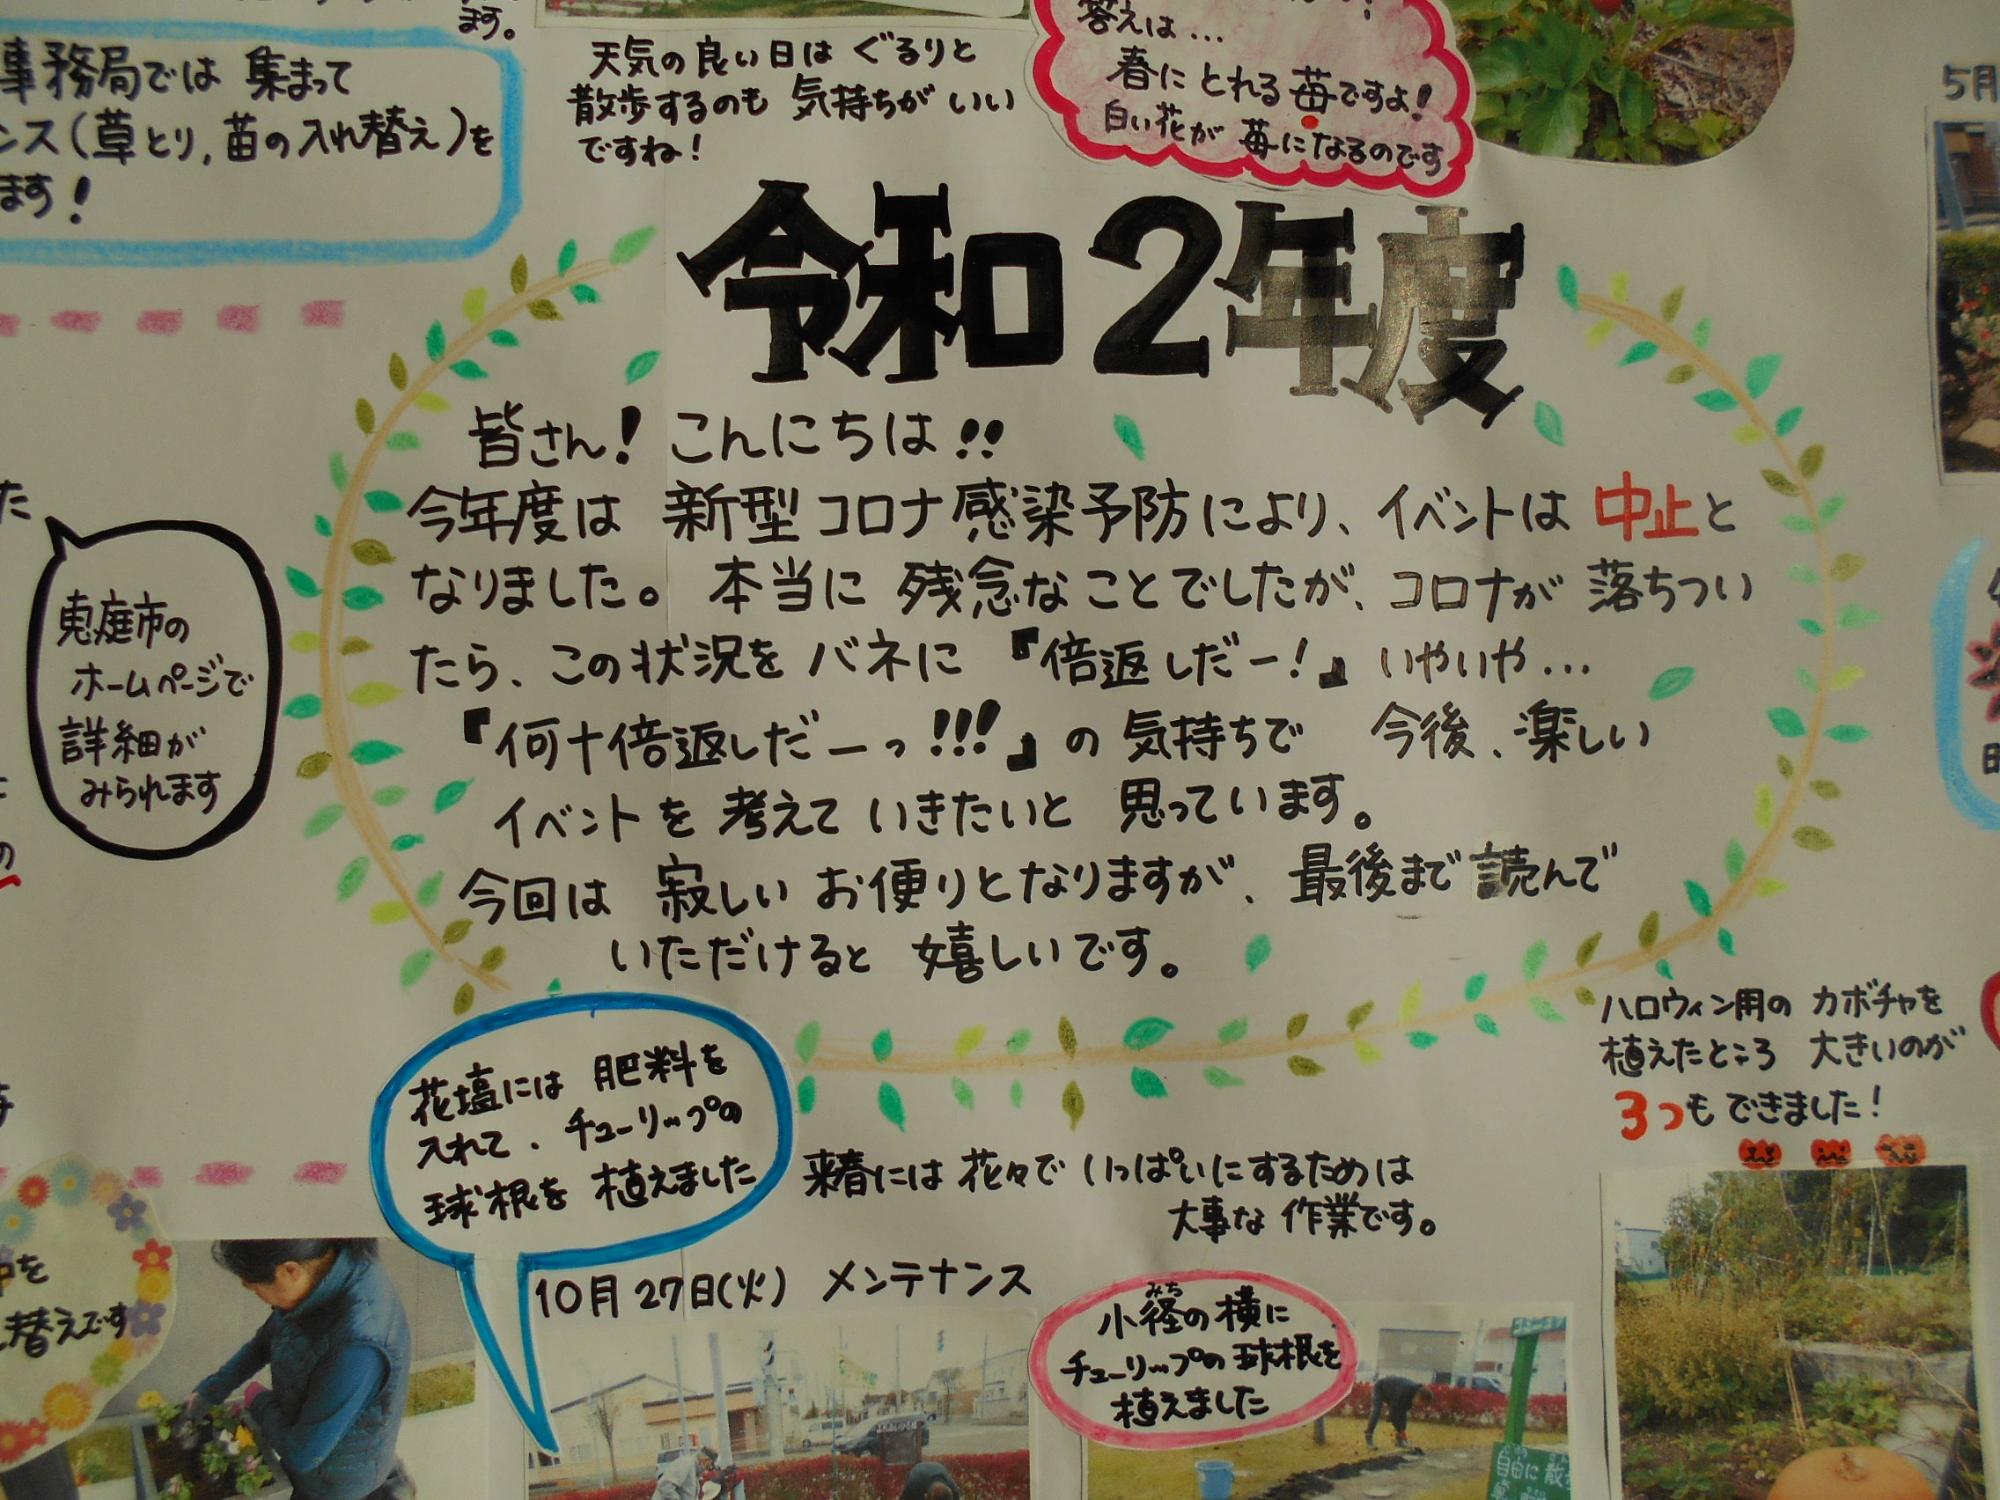 ます。
事務局では 集まって
ンス(草とり,苗の入れ替え)を
ます!
天気の良い日は ぐるりと
散歩するのも 気持ちが いい
ですね!
答えは...
春に とれる 苺ですよ!
白い花が 苺になるのです
5月
令和2年度
皆さん! こんにちは!!
今年度は 新型コロナ感染予防により、イベントは 中止と
なりました。 本当に 残念なことでしたが、コロナが 落ちつい
たら、この状況を バネに 『倍返しだー!』 いやいや...
『何十倍返しだーっ!!!』の 気持ちで 今後、楽しい
イベントを 考えて いきたいと 思っています。
今回は 寂しい お便りとなりますが、最後まで読んで
いただけると 嬉しいです。
た
恵庭市の
ホームページで
詳細が
みられます
の
ハロウィン用の カボチャを
植えたところ 大きいのが
3つも できました!
花壇には 肥料を
入れて、チューリップの
球根を 植えました
来春には 花々で いっぱいにするためは
大事な 作業です。
10月27日(火) メンテナンス
小径の 横に
みち
チューリップの 球根を
植えました
を
替えです
自由に散